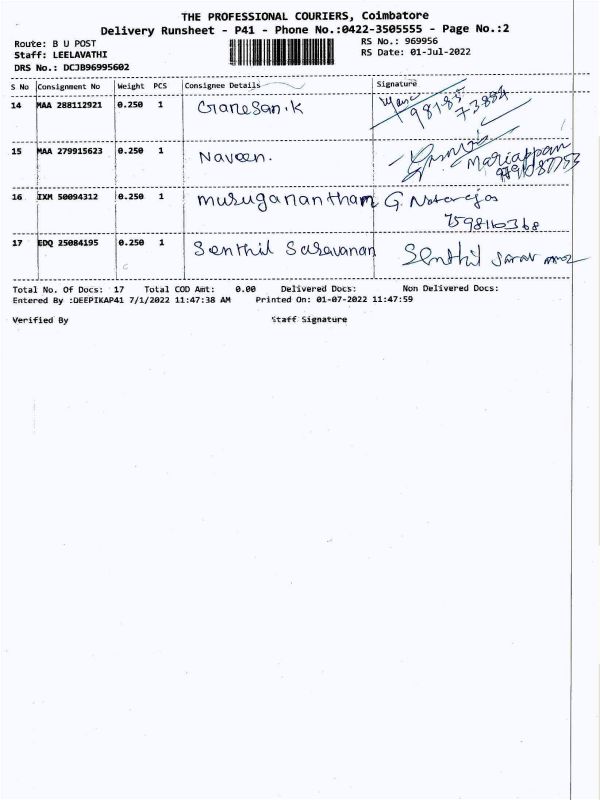 THE PROFESSIONAL COURIERS, Coimbatore
Delivery Runsheet - P41 - Phone No.:0422-3505555 - Page No.:2
Route: B U POST RS No.: 969956
Staff: LEELAVATHI RS Date: 01-Jul-2022
DRS No.: DCJB96995602
S No Consignment No Weight PCS Consignee Details Signature
14 MAA 288112921 0.250 1 Ganesan.K
98185
73884
15 MAA 279915623 0.250 1 Naveen. Mariappan
16 IXM 50094312 0.250 1 Muruganantham G.
17 EDQ 25084195 0.250 1 Senthil Saravanan Senthil
Total No. Of Docs: 17 Total COD Amt: 0.00 Delivered Docs: Non Delivered Docs:
Entered By :DEEPIKAP41 7/1/2022 11:47:38 AM Printed On: 01-07-2022 11:47:59
Verified By Staff Signature